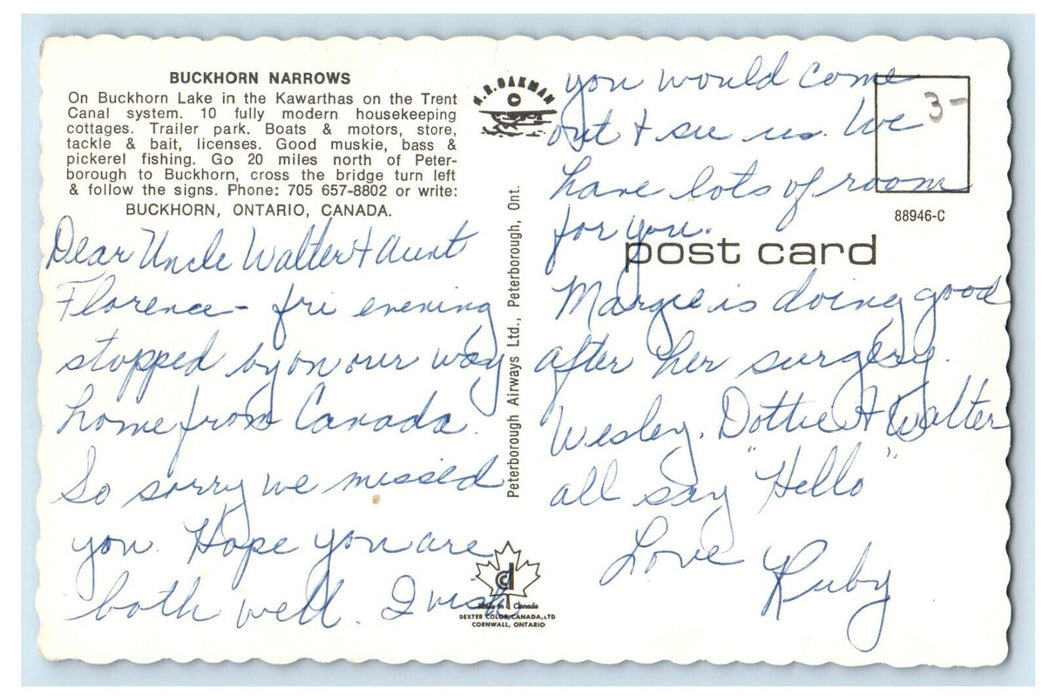 BUCKHORN NARROWS
On Buckhorn Lake in the Kawarthas on the Trent
Canal system. 10 fully modern housekeeping
cottages. Trailer park. Boats & motors, store,
tackle & bait, licenses. Good muskie, bass &
pickerel fishing. Go 20 miles north of Peter-
borough to Buckhorn, cross the bridge turn left
& follow the signs. Phone: 705 657-8802 or write:
BUCKHORN, ONTARIO, CANADA.
Dear Uncle Walter & Aunt
Florence - fri evening
stopped by on our way
home from Canada.
So sorry we missed
you. Hope you are
both well. I wish
N.H. OAKMAN
Peterborough Airways Ltd., Peterborough, Ont.
cd
Made in Canada
DEXTER COLOR, CANADA, LTD
CORNWALL, ONTARIO
you would come
out & see us. We
have lots of room
for you.
3-
88946-C
post card
Margie is doing good
after her surgery.
Wesley, Dottie & Walter
all say "Hello"
Love Ruby